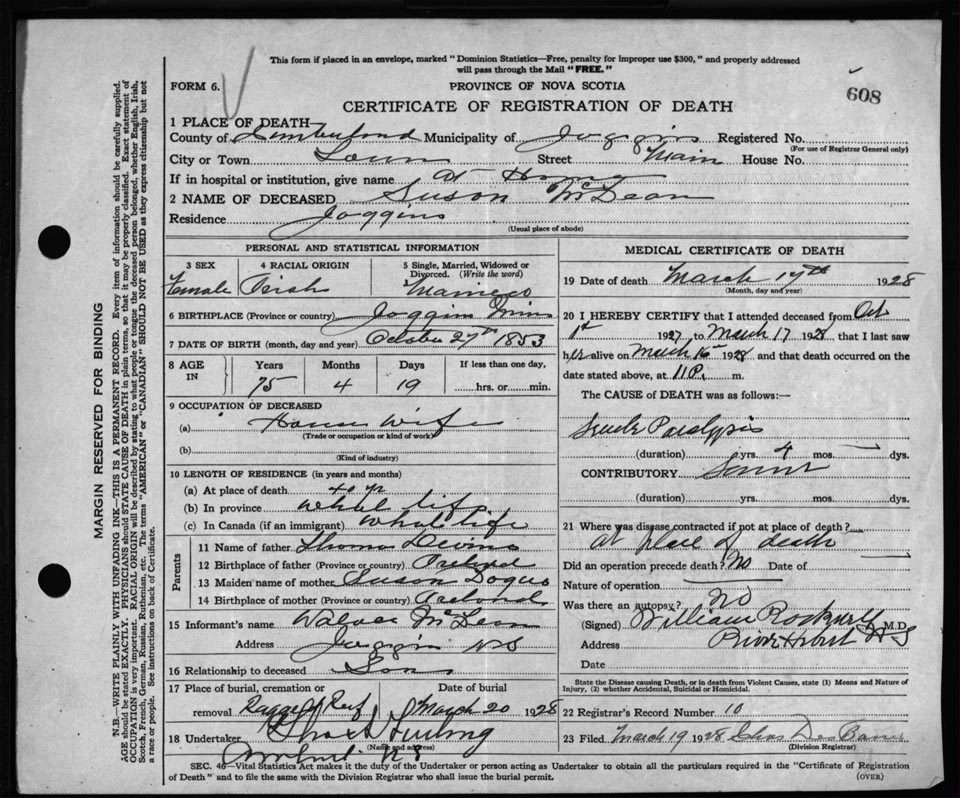 This form if placed in an envelope, marked "Dominion Statistics—Free, penalty for improper use $300," and properly addressed
will pass through the Mail "FREE."
FORM 6.
PROVINCE OF NOVA SCOTIA
608
CERTIFICATE OF REGISTRATION OF DEATH
1 PLACE OF DEATH
County of Cumberland Municipality of Joggins Registered No.
(For use of Registrar General only)
City or Town Street Main House No.
If in hospital or institution, give name At Home
2 NAME OF DECEASED Suson McLean
Residence Joggins
(Usual place of abode)
PERSONAL AND STATISTICAL INFORMATION
3 SEX
Female
4 RACIAL ORIGIN
Irish
5 Single, Married, Widowed or
Divorced. (Write the word)
Married
6 BIRTHPLACE (Province or country) Joggins Mines
7 DATE OF BIRTH (month, day and year) October 27th 1853
8 AGE
IN
Years
Months
Days
If less than one day,
75
4
19
hrs. or min.
9 OCCUPATION OF DECEASED
(a) House Wife
(Trade or occupation or kind of work)
(b)
(Kind of industry)
10 LENGTH OF RESIDENCE (in years and months)
(a) At place of death 40 yr
(b) In province whole life
(c) In Canada (if an immigrant) whole life
Parents
11 Name of father Thomas Devine
12 Birthplace of father (Province or country) Ireland
13 Maiden name of mother Suson
14 Birthplace of mother (Province or country)
15 Informant's name McLean
Address Joggins NS
16 Relationship to deceased Son
17 Place of burial, cremation or
removal Ragged Reef
Date of burial
March 20 1928
18 Undertaker
(Name and address)
Amherst NS
MEDICAL CERTIFICATE OF DEATH
19 Date of death March 17th 1928
(Month, day and year)
20 I HEREBY CERTIFY that I attended deceased from Oct
1st 1927, to March 17 1928 that I last saw
her alive on March 16 1928 and that death occurred on the
date stated above, at 11 P. m.
The CAUSE of DEATH was as follows:—
Senile Paralysis
(duration) yrs. 4 mos. — dys.
CONTRIBUTORY
(duration) yrs. mos. dys.
21 Where was disease contracted if not at place of death?
at place of death
Did an operation precede death? No Date of
Nature of operation
Was there an autopsy? No
(Signed) William Rockwell M.D.
Address River Hebert N S
Date
State the Disease causing Death, or in death from Violent Causes, state (1) Means and Nature of
Injury, (2) whether Accidental, Suicidal or Homicidal.
22 Registrar's Record Number 10
23 Filed March 19 1928 Chas
(Division Registrar)
SEC. 46—Vital Statistics Act makes it the duty of the Undertaker or person acting as Undertaker to obtain all the particulars required in the "Certificate of Registration
of Death" and to file the same with the Division Registrar who shall issue the burial permit.
(OVER)
MARGIN RESERVED FOR BINDING
N.B.—WRITE PLAINLY WITH UNFADING INK—THIS IS A PERMANENT RECORD. Every item of information should be carefully supplied.
AGE should be stated EXACTLY. PHYSICIANS should STATE CAUSE OF DEATH in plain terms, so that it may be properly classified. Exact statement of
OCCUPATION is very important. RACIAL ORIGIN will be described by stating to what people or tongue the deceased person belonged, whether English, Irish,
Scotch, French, German, Russian, Ruthenian, etc. The terms "AMERICAN" or "CANADIAN" SHOULD NOT BE USED as they express citizenship but not
a race or people. See instructions on back of Certificate.